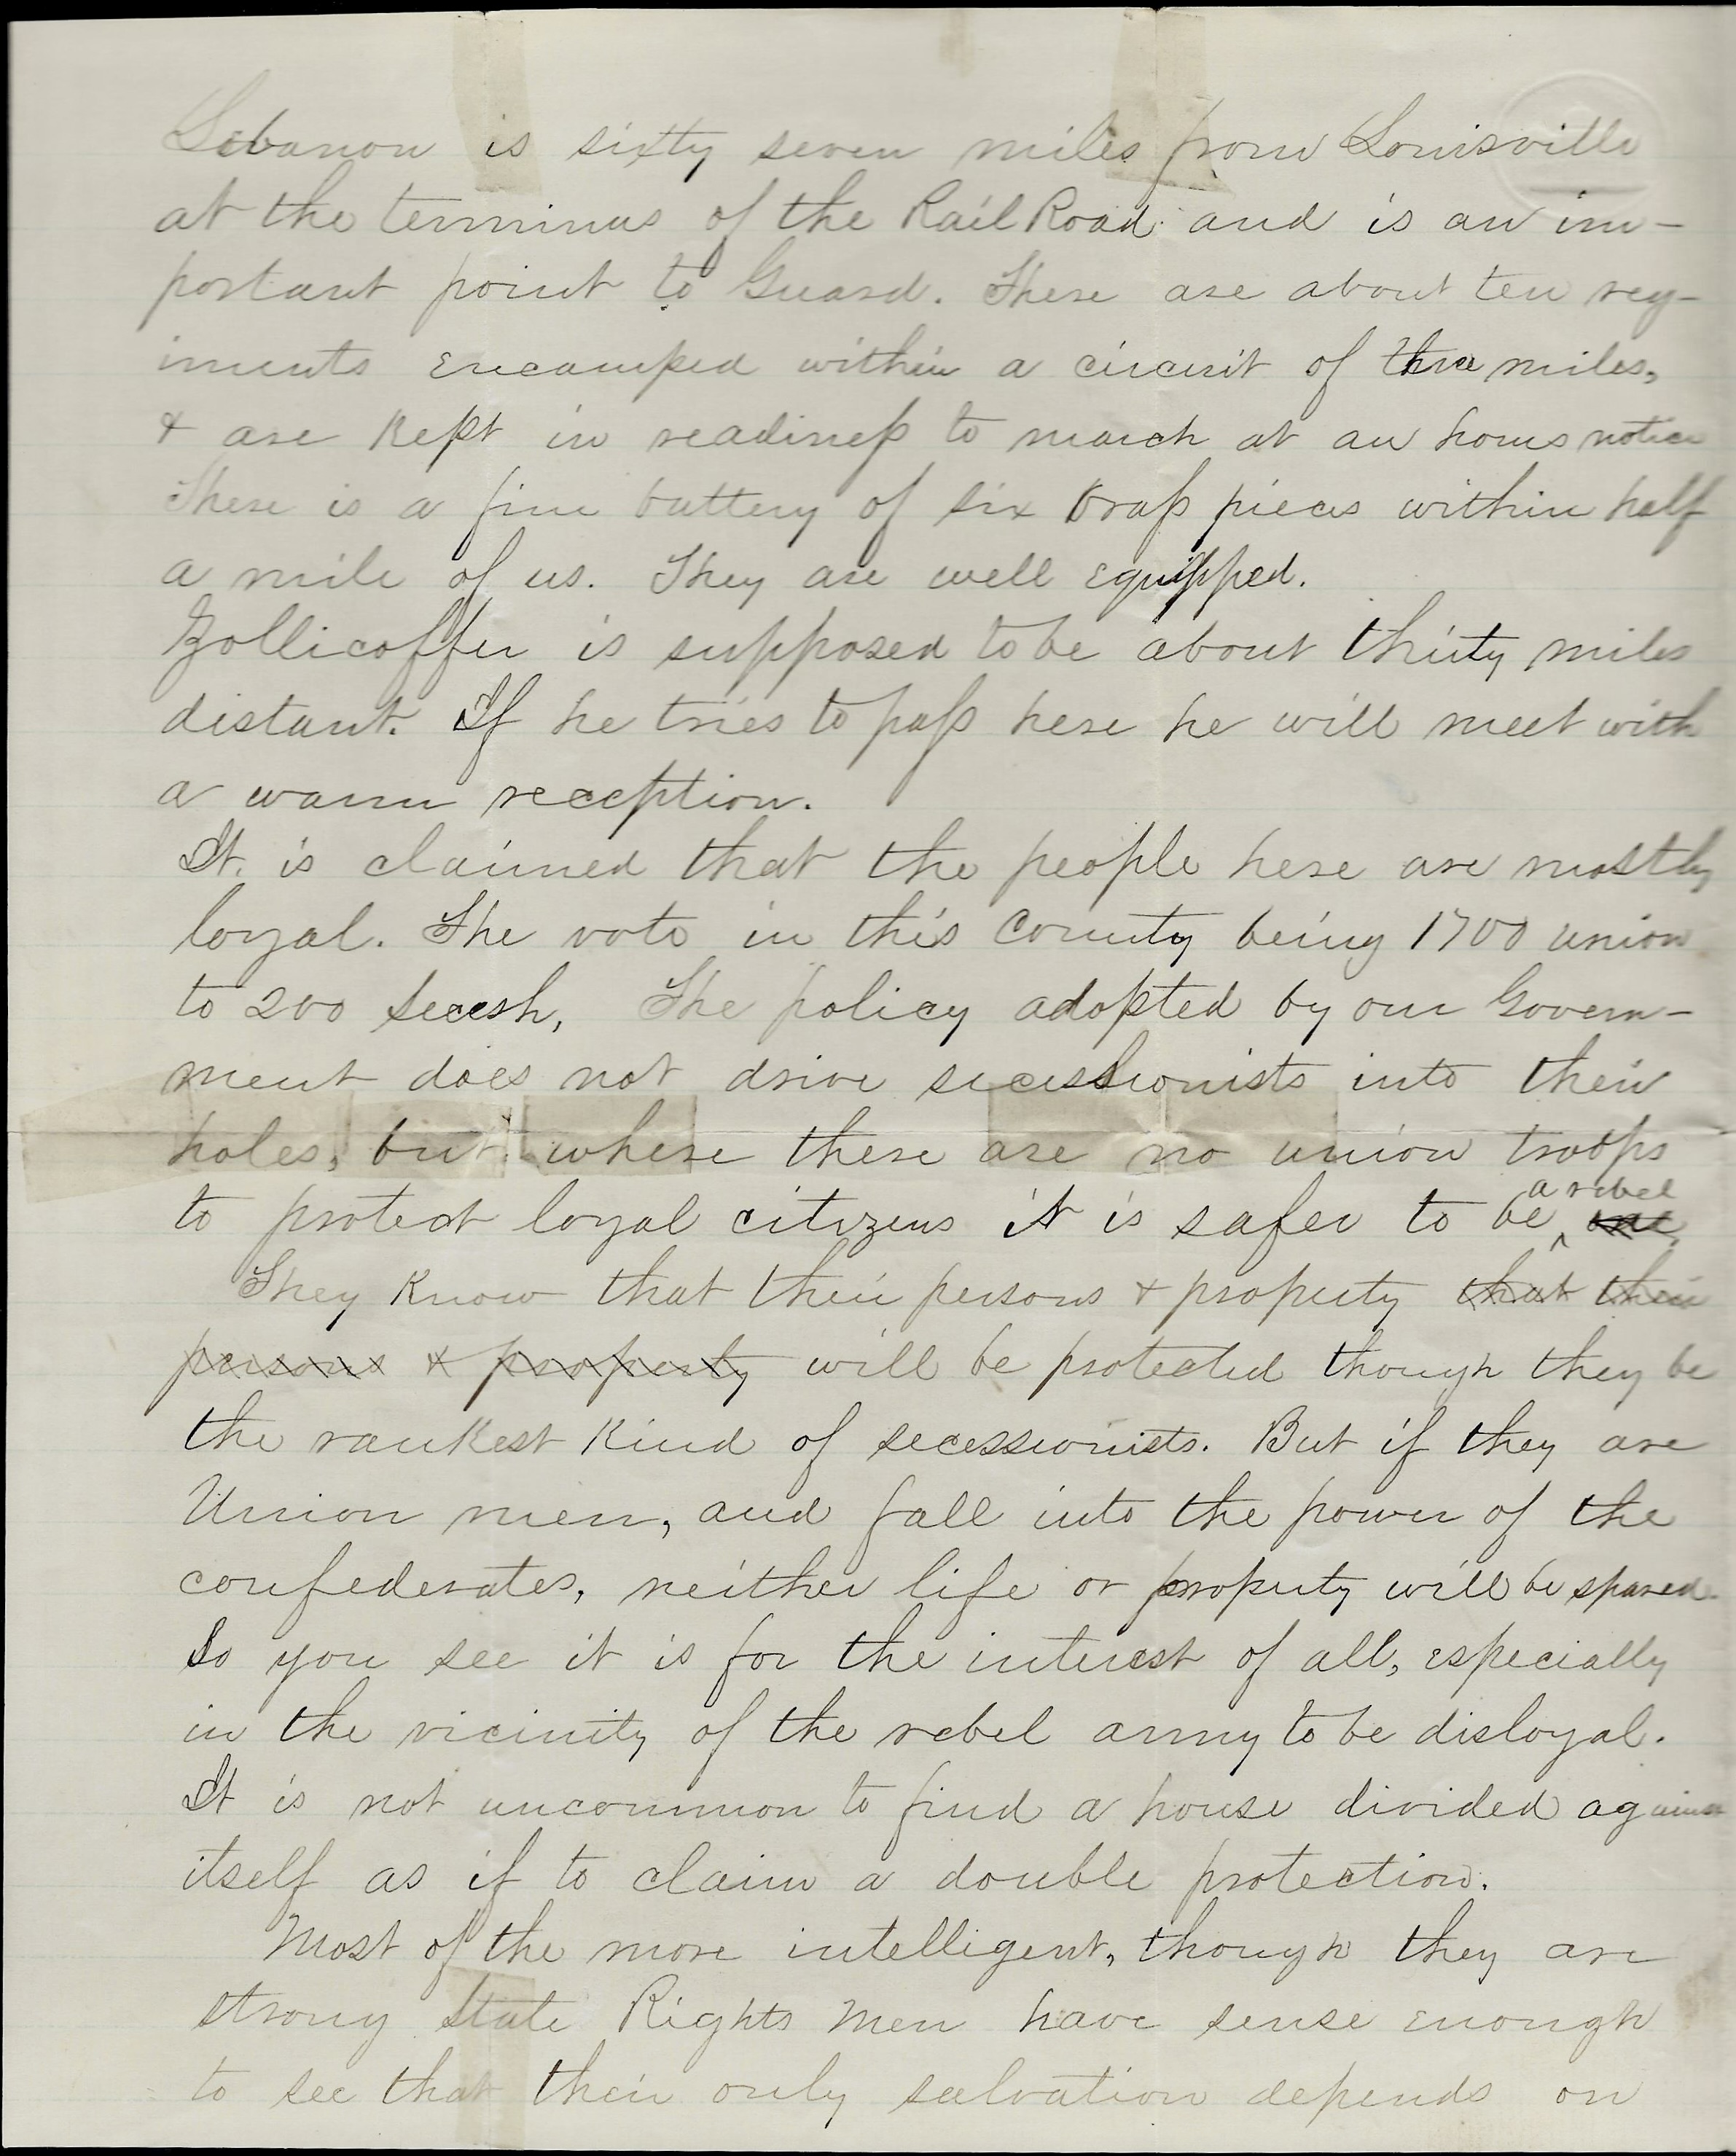 Lebanon is sixty seven miles from Louisville
at the terminus of the Rail Road and is an im-
portant point to Guard. There are about ten reg-
iments encamped within a circuit of three miles,
& are kept in readiness to march at an hours notice
There is a fine battery of six brass pieces within half
a mile of us. They are well equipped.
Zollicoffer is supposed to be about thirty miles
distant. If he tries to pass here he will meet with
a warm reception.
It is claimed that the people here are mostly
loyal. The vote in this County being 1700 union
to 200 secesh, The policy adopted by our Govern-
ment does not drive secessionists into their
holes, but where there are no union troops
to protect loyal citizens it is safer to be a rebel one
They know that their persons & property that their
persons & property will be protected though they be
the rankest kind of secessionists. But if they are
Union men, and fall into the power of the
confederates, neither life or property will be spared.
So you see it is for the interest of all, especially
in the vicinity of the rebel army to be disloyal.
It is not uncommon to find a house divided against
itself as if to claim a double protection.
Most of the more intelligent, though they are
strong State Rights men have sense enough
to see that their only salvation depends on